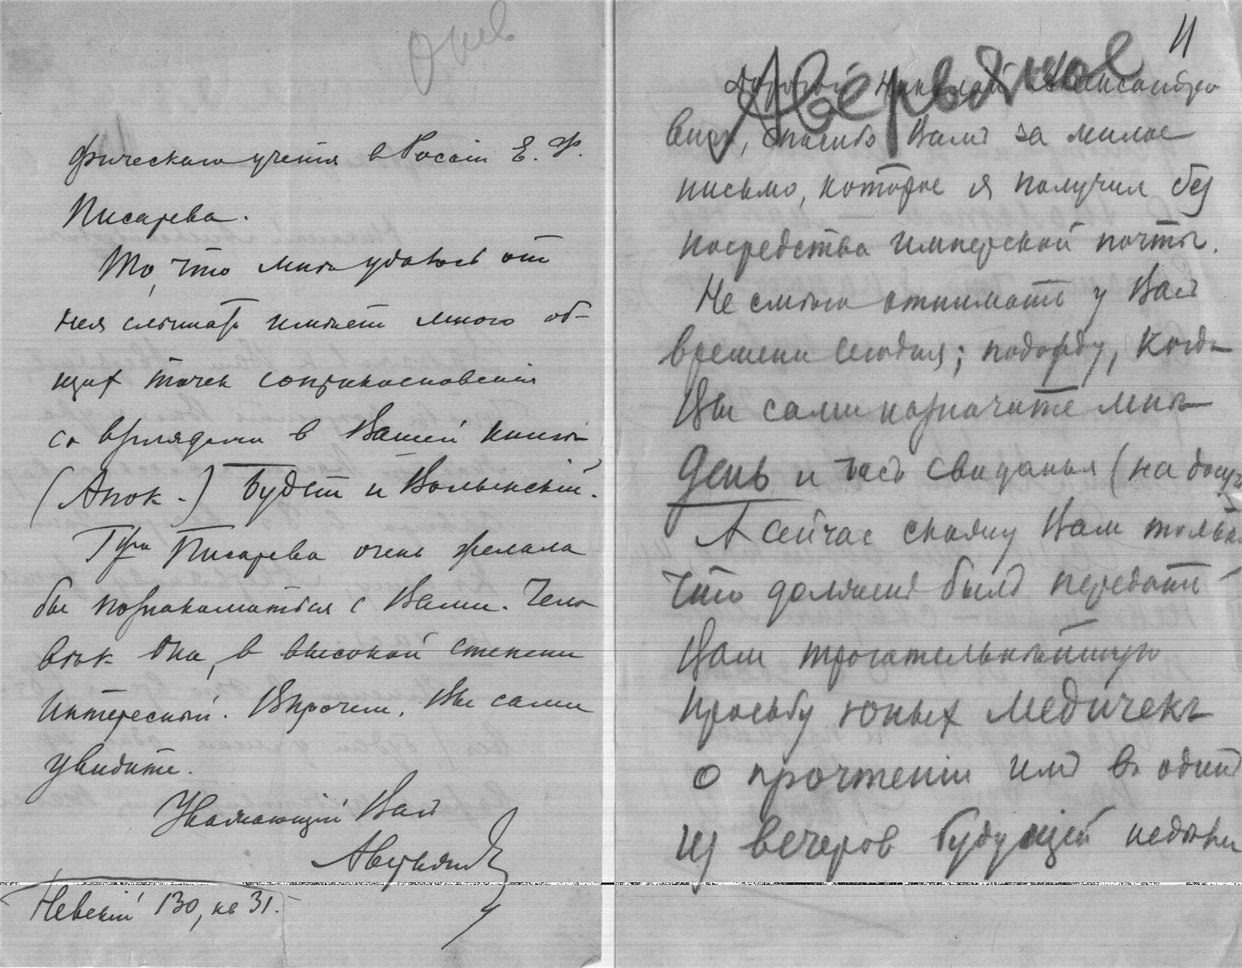 фическаго ученiя в Россiи Е. Ф.
Писарева.
То, что мнѣ удалось от
нея слышать имѣет много об-
щих точек соприкосновенiя
со взглядами в Вашей книгѣ
(Апок.) Будет и Волынскiй.
Г-жа Писарева очень желала
бы познакомиться с Вами. Чело
вѣк она, в высокой степени
интересный. Впрочем, Вы сами
увидите.
Уважающiй Вас
Аверьянов
Невскiй 130, кв 31.
11
Аверьянов
Дорогой Николай Александро
вич, спасибо Вамъ за милое
письмо, которое я получил без
посредства имперской почты.
Не смѣю отнимать у Вас
времени сегодня; подожду, когда
Вы сами назначите мнѣ
день и часъ свиданья (на досугѣ
А сейчас скажу Вам только
что должен был передать
Вам трогательнѣйшую
просьбу юных медичекъ
о прочтенiи имъ в один
из вечеров будущей недѣли